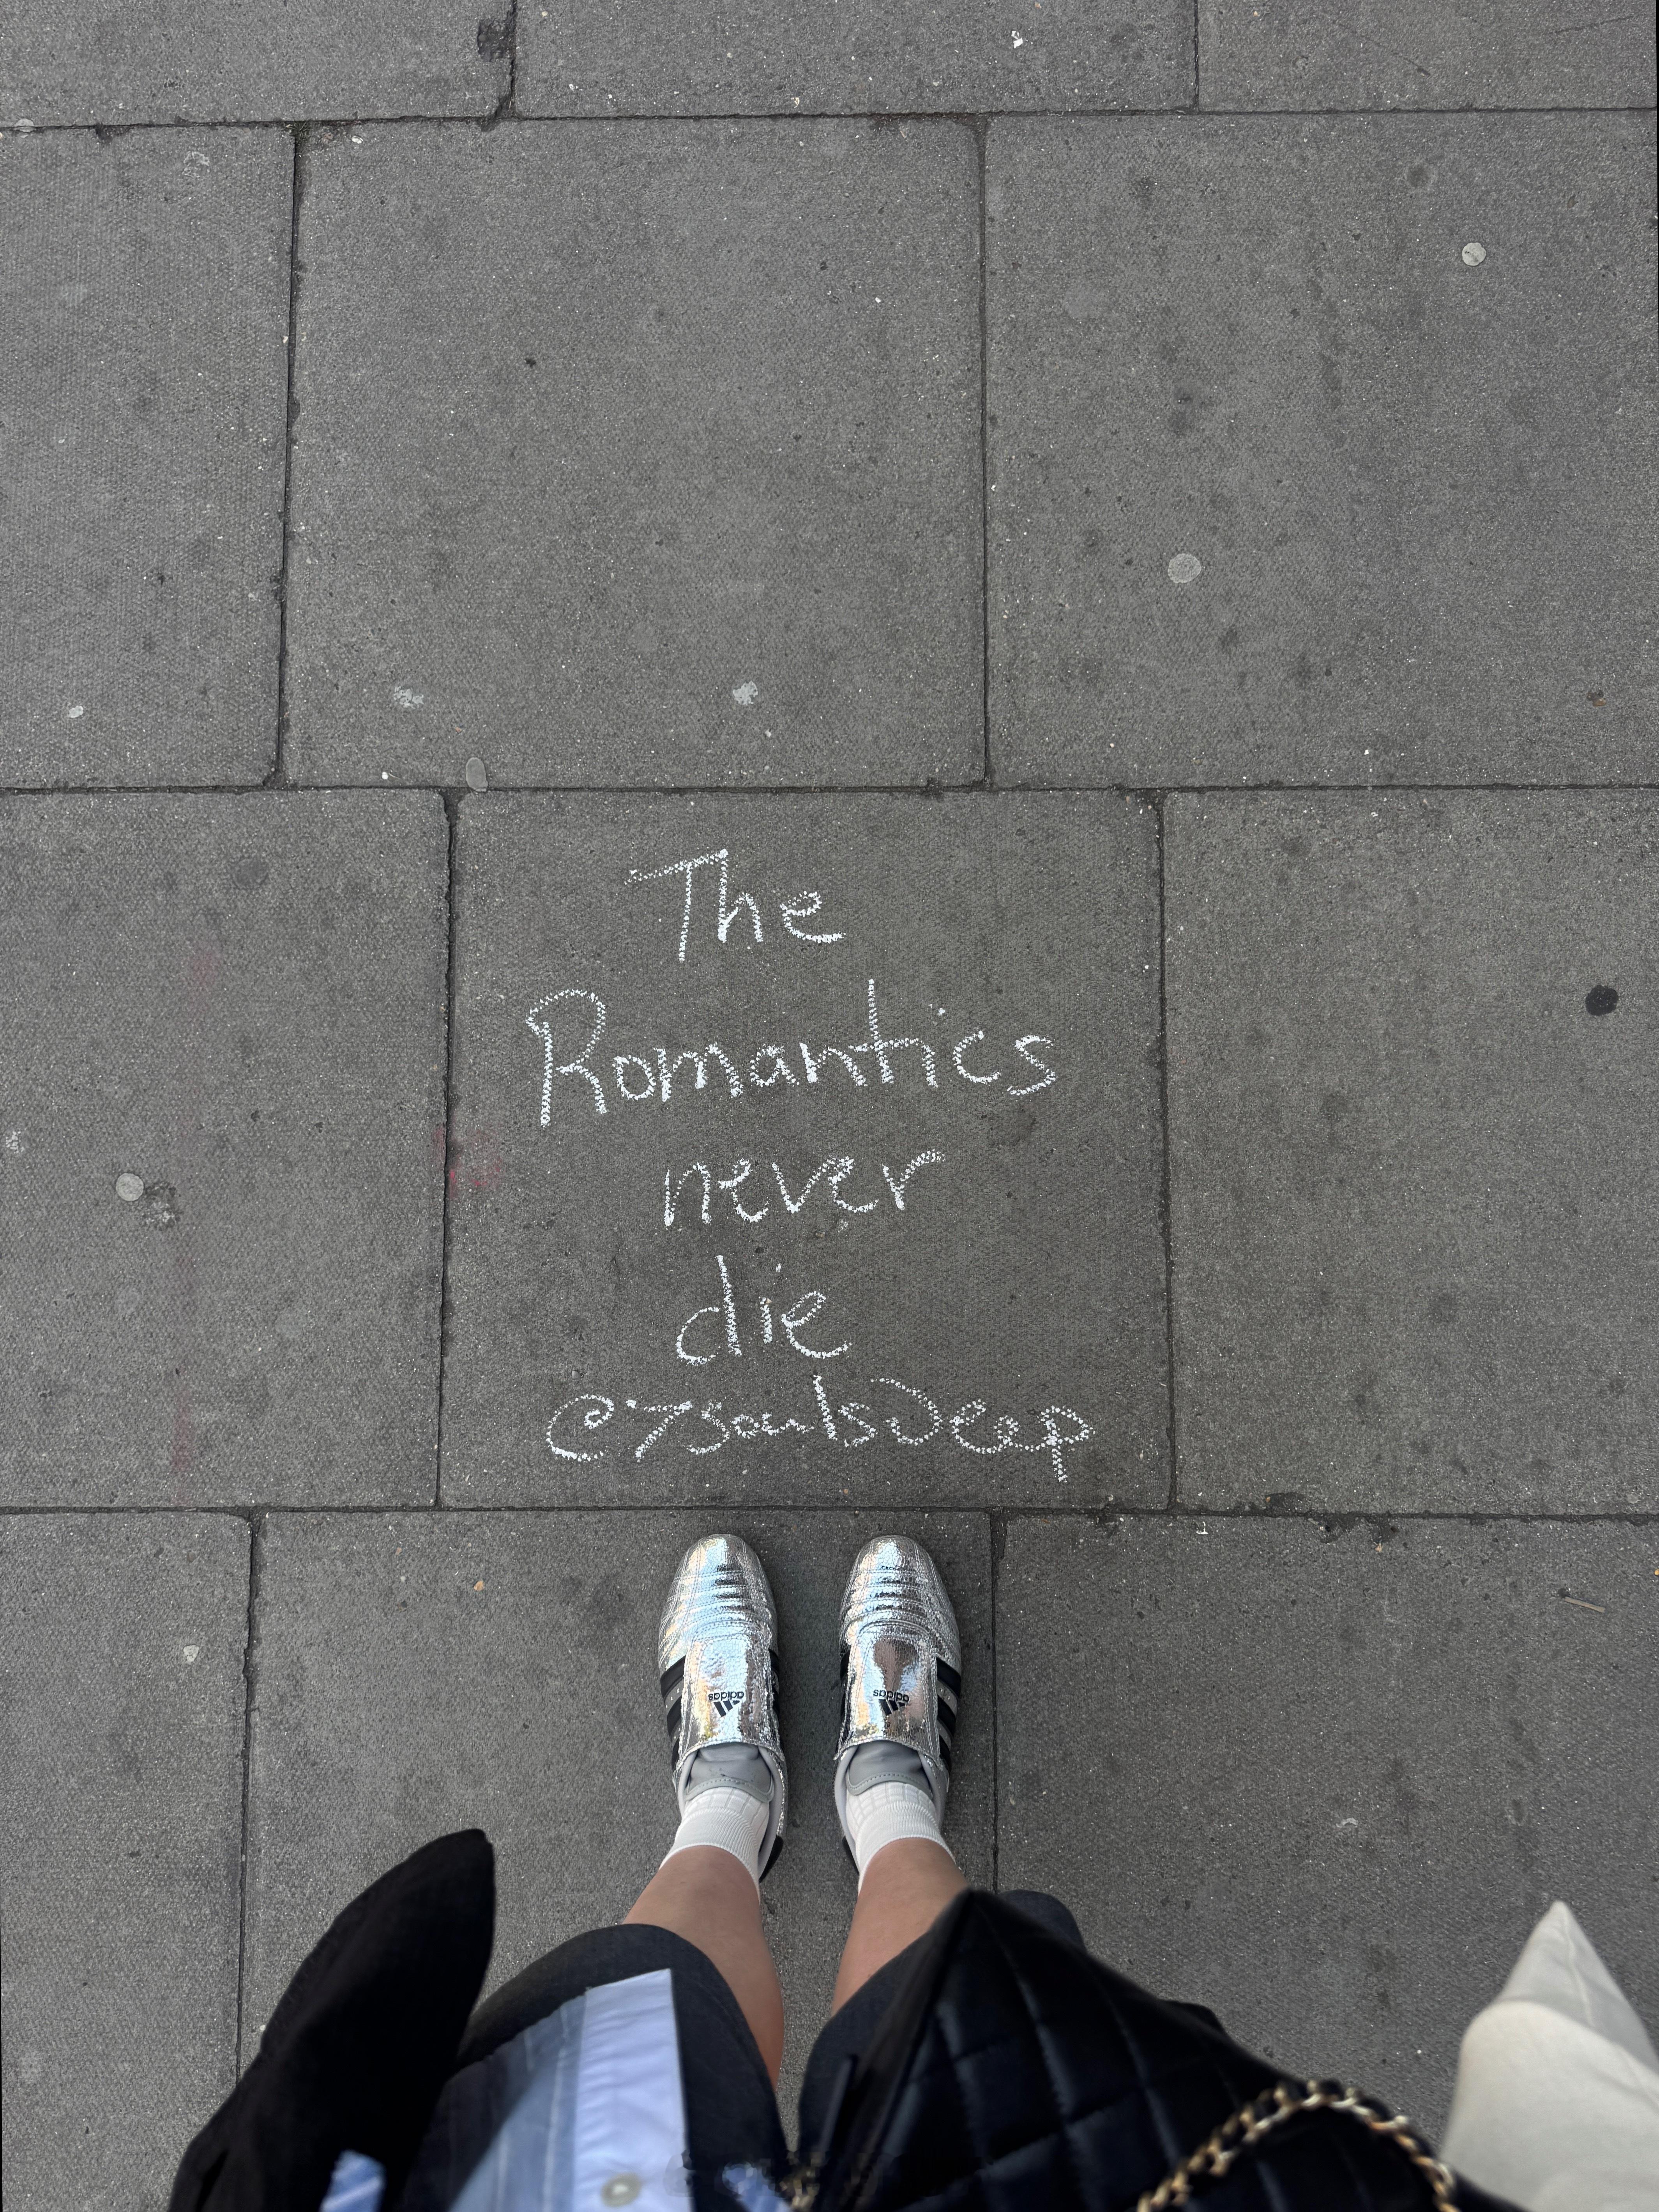 The
Romantics
never
die
@7soulsDeep
adidas
adidas